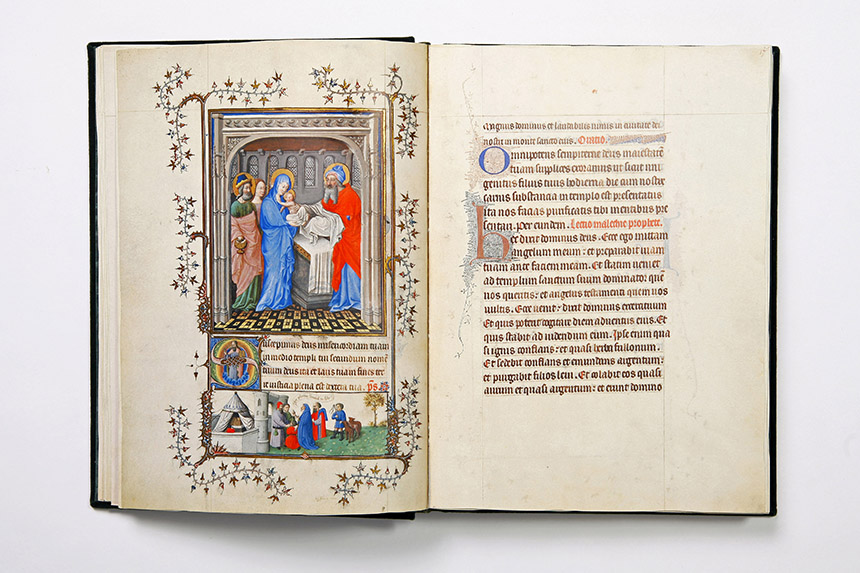 Suscepimus deus misericordiam tuam
in medio templi tui secundum nomē
tuum deus ita et laus tua in fines ter
re iusticia plena est dextera tua. p̄s.
Magnus dominus et laudabilis nimis in civitate dei
nostri in monte sancto eius. Oratio.
Omnipotens sempiterne deus maiestatē
tuam supplices exoramus ut sicut uni
genitus filius tuus hodierna die cum nostre
carnis substancia in templo est presentatus
ita nos facias purificatis tibi mentibus pre
sentari. Per eundem. Lectio malechie prophete.
Hec dicit dominus deus. Ecce ego mittam
angelum meum: et preparabit viam
tuam ante faciem meam. Et statim veniet
ad templum sanctum suum dominator: quem
vos queritis: et angelus testamenti quem vos
vultis. Ecce venit: dicit dominus exercituum
Et quis poterit cogitare diem adventus eius. Et
quis stabit ad videndum eum. Ipse enim qua
si ignis conflans: et quasi herba fullonum.
Et sedebit conflans et emundans argentum: et
purgabit filios levi. Et colabit eos quasi
aurum et quasi argentum: et erunt domino